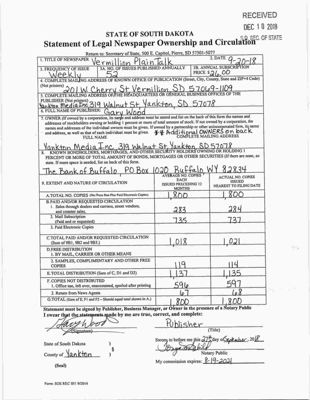 RECEIVED
DEC 10 2018
S.D. SEC. OF STATE
STATE OF SOUTH DAKOTA
Statement of Legal Newspaper Ownership and Circulation
Return to: Secretary of State, 500 E. Capitol, Pierre, SD 57501-5077
1. TITLE OF NEWSPAPER Vermillion Plain Talk 2. DATE 9-20-18
3. FREQUENCY OF ISSUE Weekly 3A. NO. OF ISSUES PUBLISHED ANNUALLY 52 3B. ANNUAL SUBSCRIPTION PRICE
4. COMPLETE MAILING ADDRESS OF KNOWN OFFICE OF PUBLICATION (Street, City, County, State and ZIP+4 Code)
(Not printers) 201 W Cherry St Vermillion, SD 57069-1109
5. COMPLETE MAILING ADDRESS OF THE HEADQUARTERS OF GENERAL BUSINESS OFFICES OF THE
PUBLISHER (Not printer)
Yankton Media Inc 319 Walnut St. Yankton, SD 57078
6. FULL NAME OF PUBLISHER: Gary Wood
7. OWNER (If owned by a corporation, its name and address must be stated and also the names and
addresses of stockholders owning or holding 1 percent or more of total amount of stock. If not owned by a corporation, the
names and addresses of the individual owners must be given. If owned by a partnership or other unincorporated firm, its name
and address, as well as that of each individual must be given. ** Additional OWNERS on back
FULL NAME COMPLETE MAILING ADDRESS
Yankton Media Inc. 319 Walnut St. Yankton SD 57078
8. KNOWN BONDHOLDERS, MORTGAGES, AND OTHER SECURITY HOLDERS OWNING OR HOLDING 1
PERCENT OR MORE OF TOTAL AMOUNT OF BONDS, MORTGAGES OR OTHER SECURITIES (If there are none, so
state. If more space is needed, list on back of this form.
The Bank of Buffalo, PO Box 1020 Buffalo WY 82834
9. EXTENT AND NATURE OF CIRCULATION
AVERAGE NO. COPIES EACH ISSUED PRECEDING 12 MONTHS
ACTUAL NO. COPIES ISSUED NEAREST TO FILING DATE
A. TOTAL NO. COPIES 1,800 1,800
B. PAID AND/OR REQUESTED CIRCULATION
1. Sales through dealers and carriers, street vendors, and counter sales. 283 284
2. Mail Subscription (Paid and or requested) 735 737
3. Paid Electronic Copies
C. TOTAL PAID AND/OR REQUESTED CIRCULATION
(Sum of 9B1, 9B2 and 9B3.) 1,018 1,021
D. FREE DISTRIBUTION
1. BY MAIL, CARRIER OR OTHER MEANS
2. SAMPLES, COMPLIMENTARY AND OTHER FREE COPIES 119 114
E. TOTAL DISTRIBUTION (Sum of C, D1 and D2) 1,137 1,135
F. COPIES NOT DISTRIBUTED
1. Office use, left over, unaccounted, spoiled after printing 596 597
2. Return from News Agents 67 68
G. TOTAL (Sum of E, F1 and F2 - Should equal total shown in A.) 1,800 1,800
Statement must be signed by Publisher, Business Manager, or Owner in the presence of a Notary Public
I swear that the statements made by me are true, correct, and complete:
Gary Wood Publisher
(Signature) (Title)
State of South Dakota )
§
County of Yankton )
(Seal)
Sworn to before me this 27th day of September, 2018
Notary Public
My commission expires: 8-19-2021
Form: SOS REC 501 9/2014